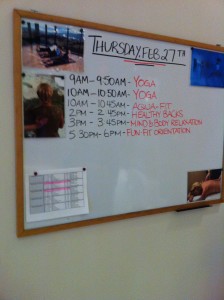 THURSDAY, FEB 27TH
9AM - 9:50AM - YOGA
10AM - 10:50AM - YOGA
10AM - 10:45AM - AQUA-FIT
2PM - 2:45PM - HEALTHY BACKS
3PM - 3:45PM - MIND & BODY RELAXATION
5:30PM - 6PM - FUN-FIT ORIENTATION